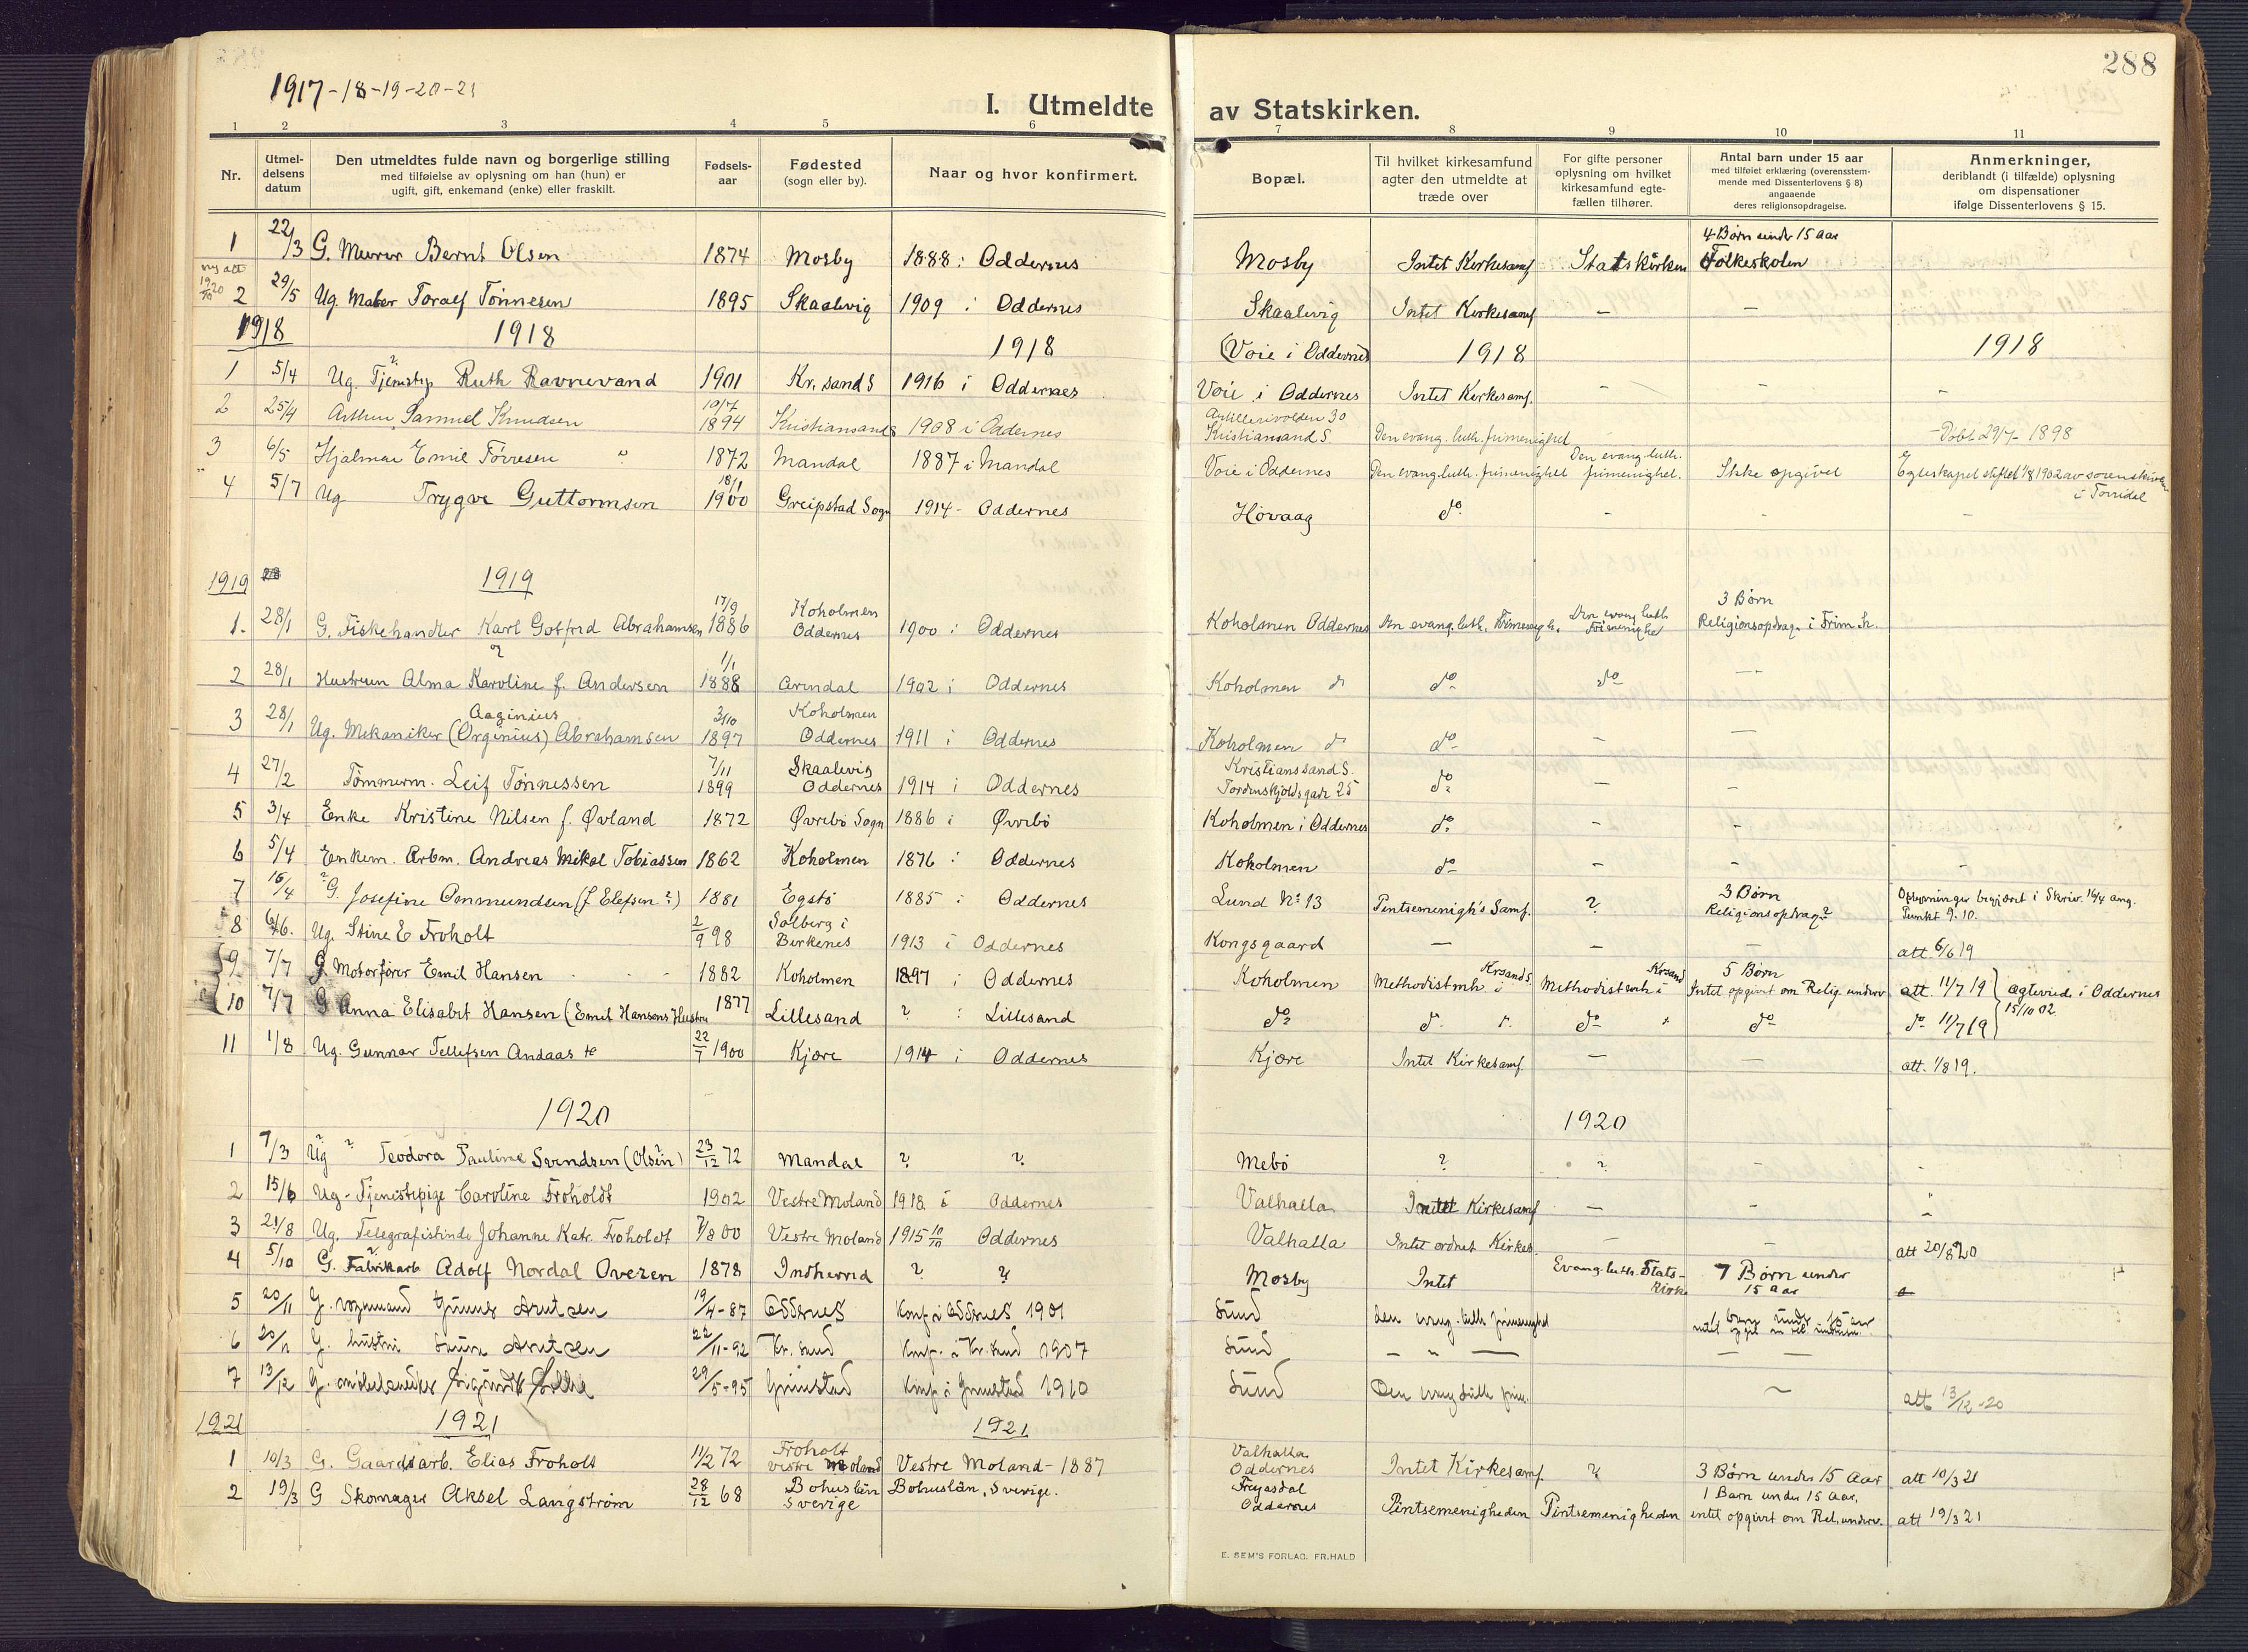 288
1917-18-19-20-21
I. Utmeldte av Statskirken.
1 2 3 4 5 6 7 8 9 10 11
Nr.
Utmel-
delsens
datum
Den utmeldtes fulde navn og borgerlige stilling
med tilføielse av oplysning om han (hun) er
ugift, gift, enkemand (enke) eller fraskilt.
Fødsels-
aar
Fødested
(sogn eller by).
Naar og hvor konfirmert.
Bopæl.
Til hvilket kirkesamfund
agter den utmeldte at
træde over
For gifte personer
oplysning om hvilket
kirkesamfund egte-
fællen tilhører.
Antal barn under 15 aar
med tilføiet erklæring (overensstem-
mende med Dissenterlovens § 8)
angaaende
deres religionsopdragelse.
Anmerkninger,
deriblandt (i tilfælde) oplysning
om dispensationer
ifølge Dissenterlovens § 15.
4 Børn under 15 aar
1 22/3 G. Murer Bernt Olsen 1874 Mosby 1888 i Oddernes Mosby Intet Kirkesamf Statskirken Folkeskolen
ny att
2 29/5 Ug. Maler Toralf Tønnesen 1895 Skaalevig 1909 i Oddernes Skaalevig Intet Kirkesamf — —
1918 1918 1918 (Voie i Oddernes 1918 1918
1 5/4 Ug. Tjenstep Ruth Ravnevand 1901 Kr.sand S 1916 i Oddernes Voie i Oddernes Intet Kirkesamf. — — —
10/7 Artillerivolden 30
2 25/4 Arthur Samuel Knudsen 1894 Kristiansand S 1908 i Oddernes Kristiansand S. Den evang. luth. frimenighet Døbt 29/7 1898
Den evang. luth.
3 6/5 Hjalmar Emil Tørresen 1872 Mandal 1887 i Mandal Voie i Oddernes Den evang. luth. frimenighet frimenighet. Ikke opgivet Egteskapet stiftet 1/8 1902 av sorenskriveren
i Torridal
18/1
4 5/7 Ug Trygve Guttormsen 1900 Greipstad Sogn 1914 - Oddernes Høvaag do — — —
1919 1919
17/9 Koholmen Den evang luth 3 Børn
1. 28/1 G. Fiskehandler Karl Gotfred Abrahamsen 1886 Oddernes 1900 i Oddernes Koholmen Oddernes Den evang. luth. Frimenigh. Frimenighe Religionsopdrag. i Frim.h.
og 1/1
2 28/1 Hustruen Alma Karoline f. Andersen 1888 Arendal 1902 i Oddernes Koholmen do do do —
Aaginius 3/10 Koholmen
3 28/1 Ug. Mekaniker (Ørginius) Abrahamsen 1897 Oddernes 1911 i Oddernes Koholmen do do — —
7/11 Skaalevig Kristianssand S.
4 27/2 Tømmerm. Leif Tønnessen 1899 Oddernes 1914 i Oddernes Tordenskjoldsgade 25 do — —
5 3/4 Enke Kristine Nilsen f. Øvland 1872 Øvrebø Sogn 1886 i Øvrebø Koholmen i Oddernes do — —
6 5/4 Enkem. Arbm. Andreas Mikal Tobiassen 1862 Koholmen 1876 i Oddernes Koholmen do — — —
3 Børn
7 16/4 ? G. Josefine Ommundsen (f Elefsen ?) 1881 Egstø 1885 i Oddernes Lund No 13 Pentsemenigh's Samf. ? Religionsopdrag? Oplysninger begjært i Skriv. 16/4 ang.
Punkt 9. 10.
8 6/6. Ug. Stine E Froholt 2/9 98 Solberg i
Birkenes 1913 i Oddernes Kongsgaard — — — att 6/6 19
Krsand S. Krsand 5 Børn
9 7/7 G. Motorfører Emil Hansen 1882 Koholmen 1897 i Oddernes Koholmen Methodistmh. i Methodistmh i Intet opgivet om Relig. underv att. 11/7 19 ægteviede i Oddernes
15/10 02.
10 7/7 G Anna Elisabet Hansen (Emil Hansens Hustru 1877 Lillesand ? : Lillesand do do do do do 11/7 19
11 1/8 Ug. Gunnar Tellefsen Andaas 22/7 1900 Kjøre 1914 i Oddernes Kjøre Intet Kirkesamf. — — att. 1/8 19.
1920 1920
1 7/3 Ug ? Teodora Pauline Svendsen (Olsen) 23/12 72 Mandal ? ? Mebø ? ? — —
2 15/6 Ug - Tjenestepige Caroline Froholdt 1902 Vestre Moland 1918 i Oddernes Valhalla Intet Kirkesamf — —
3 21/8 Ug. Telegrafistinde Johanne Katr. Froholdt 7/8 00 Vestre Moland 1915 10/10 Oddernes Valhalla Intet ordnet Kirkes. — — att 20/8 20
Evang. luth. Stats- 7 Børn under
4 5/10 G. Fabrikarb Adolf Nordal Ovesen 1878 Indherred ? ? Mosby Intet Kirke 15 aar
5 20/11 G. Arntzen 19/4-87 Oddernes Konf i Oddernes 1901 Lund den evug. luth frimenighed
6 20/11 G. hustru Laura Arntzen 22/11-92 Kr. sand Konf. i Kr. sand 1907 Lund — " — — —
7 13/12 G. 29/5-95 Grimstad Konf i Grimstad 1910 Lund Den evug luth frim. — att 13/12-20
1921 1921 1921
Froholt Valhalla
1 10/3 G. Gaardsarb. Elias Froholt 11/2 72 Vestre Moland Vestre Moland - 1887 Oddernes Intet Kirkesamf. ? 3 Børn under 15 aar att 10/3 21
Bohuslän Frejasdal 1 Barn under 15 aar,
2 19/3 G Skomager Aksel Langstrøm 28/12 68 Sverige Bohuslän, Sverige. Oddernes Pintsemenigheden Pintsemenigheden intet opgivt om Rel.underv. att 19/3 21
E. SEM'S FORLAG. FR.HALD